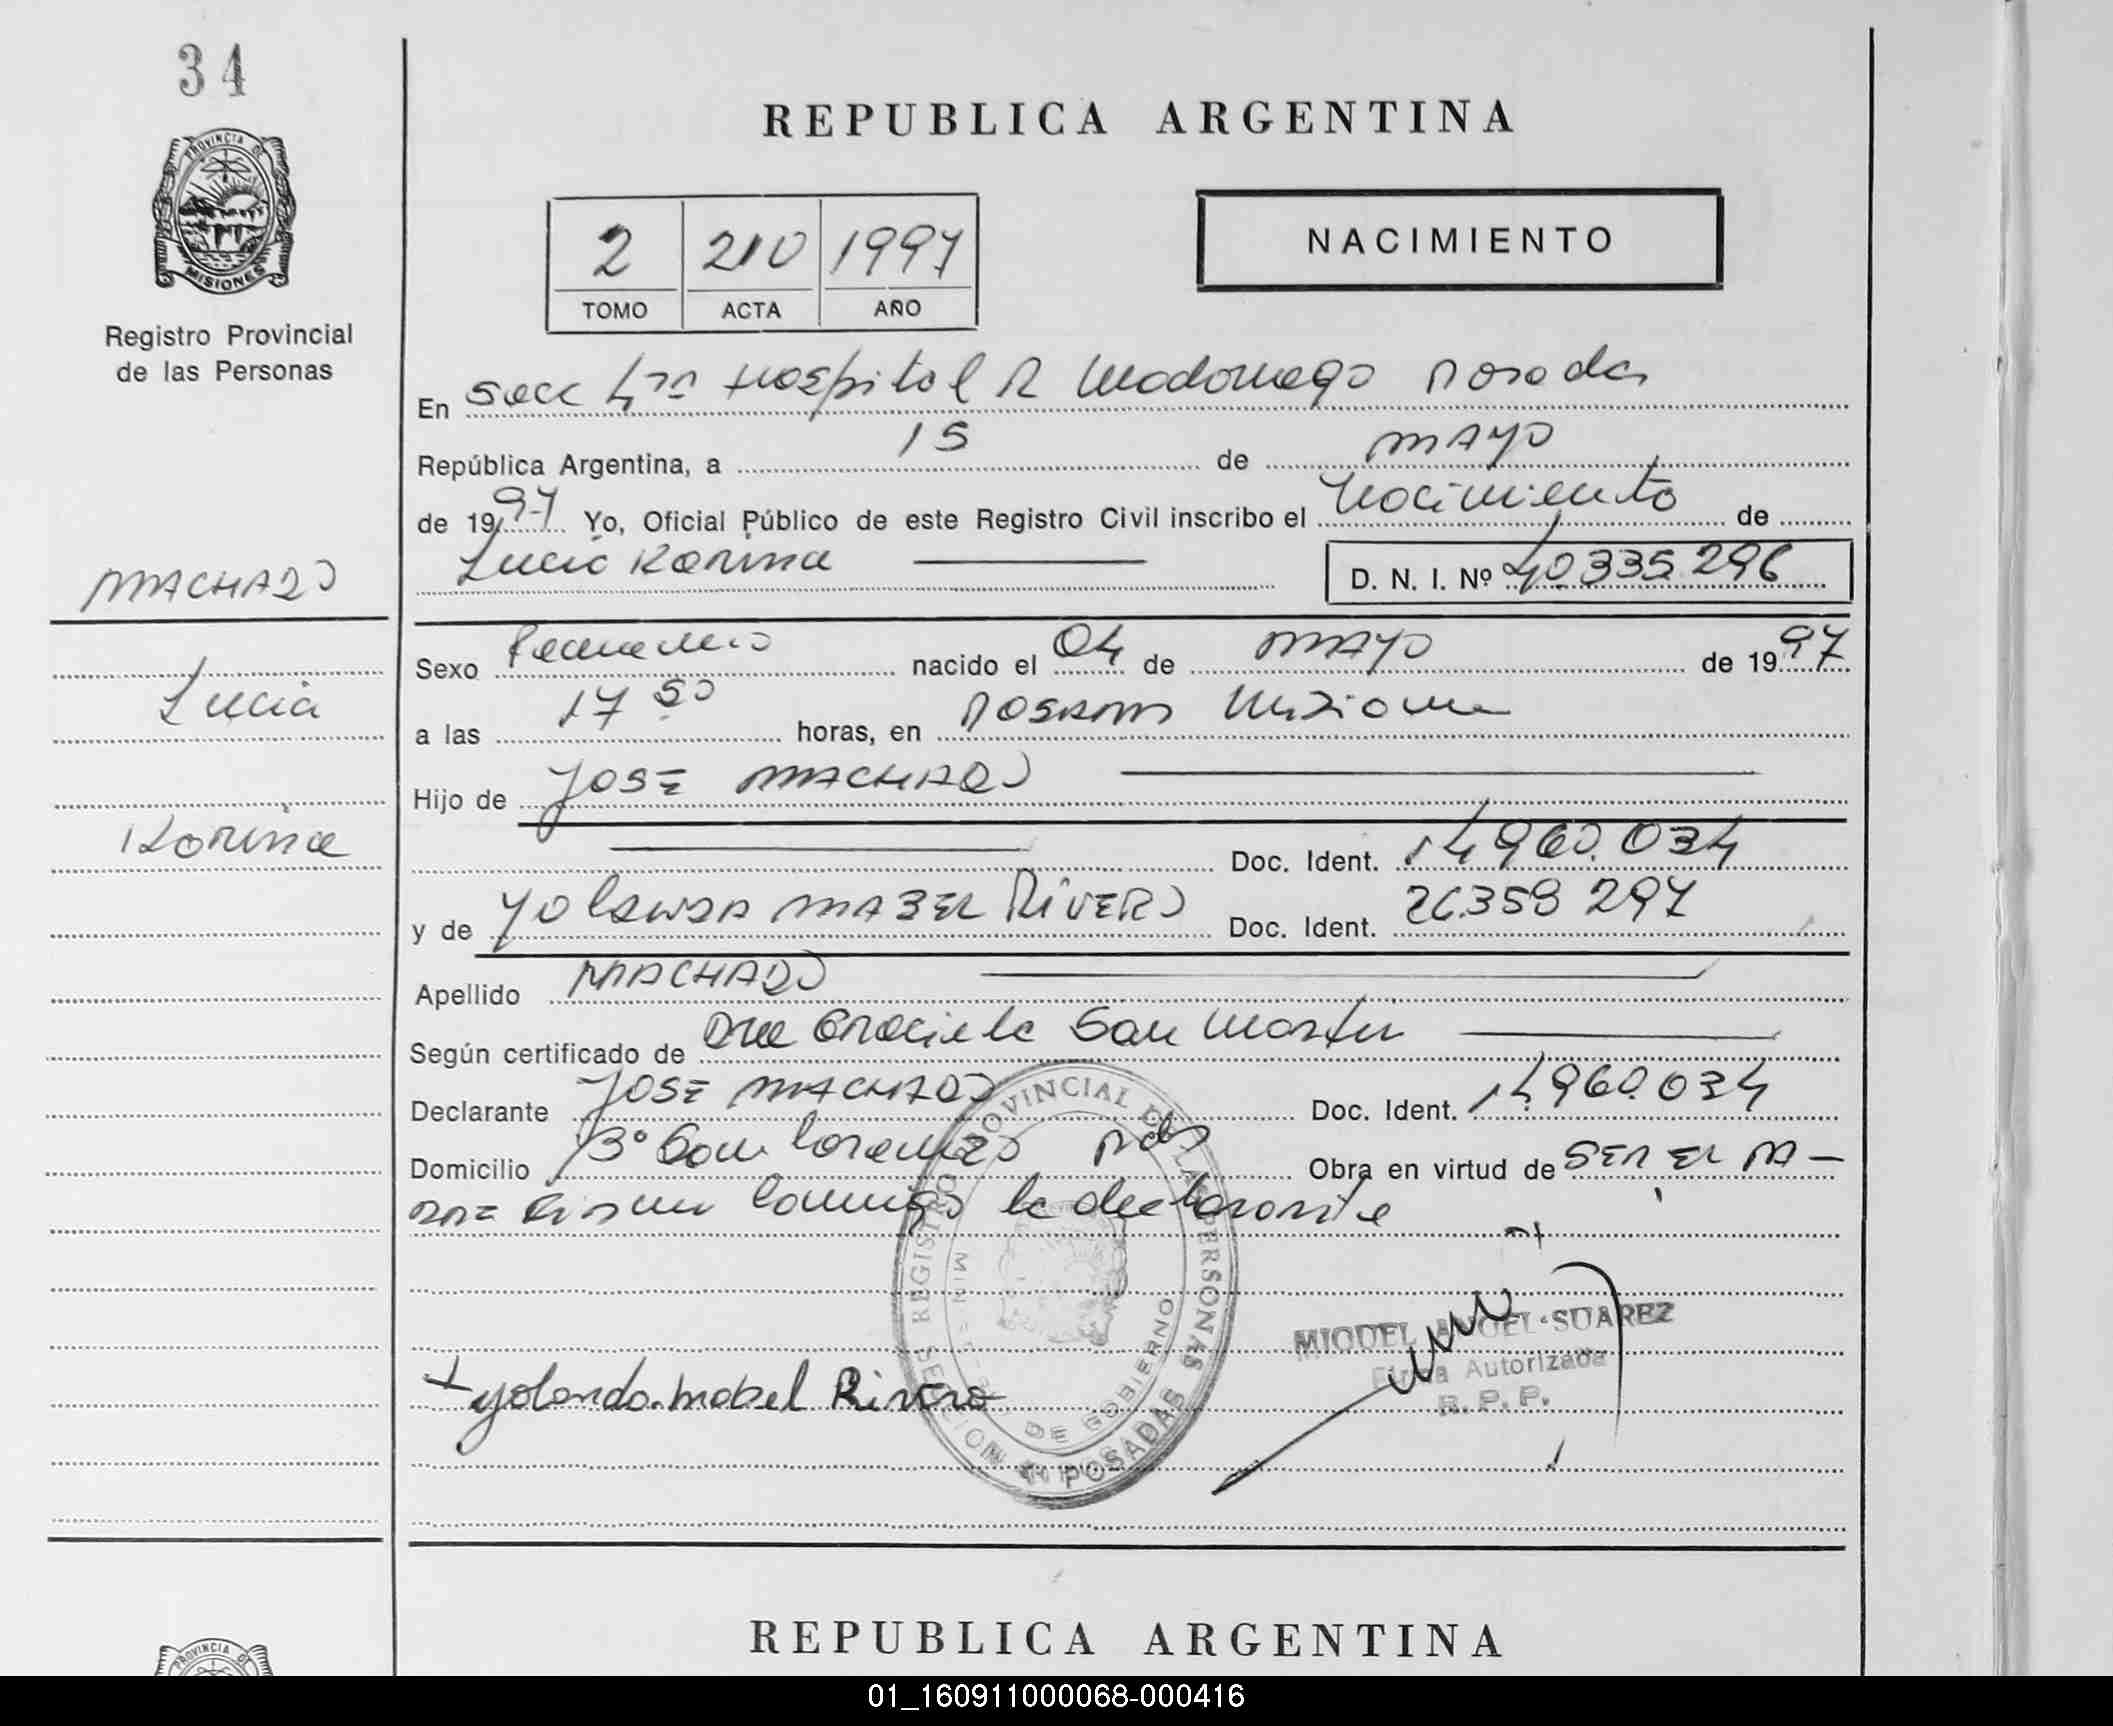 34
REPUBLICA ARGENTINA
PROVINCIA DE
MISIONES
Registro Provincial
de las Personas
2 210 1997
TOMO ACTA AÑO
NACIMIENTO
En Secc 4ta Hospital R Madariaga Posadas
República Argentina, a 15 de MAYO
de 1997 Yo, Oficial Público de este Registro Civil inscribo el Nacimiento de
Lucia Karina D. N. I. Nº 40.335.296
MACHADO
Lucia
Karina
Sexo Femenino nacido el 04 de MAYO de 1997
a las 17 50 horas, en POSADAS Misiones
Hijo de JOSE MACHADO
Doc. Ident. 14.960.034
y de YOLANDA MABEL RIVERO Doc. Ident. 26.358 297
Apellido MACHADO
Según certificado de Dra Graciela San Martin
Declarante JOSE MACHADO Doc. Ident. 14.960.034
Domicilio Bº San Lorenzo Pdas Obra en virtud de SER EL PA-
DRE Firman conmigo la declarante
REGISTRO PROVINCIAL DE LAS PERSONAS
DE GOBIERNO
SECCION POSADAS
MIGUEL ANGEL SUAREZ
Firma Autorizada
R. P. P.
Yolanda Mabel Rivero
REPUBLICA ARGENTINA
PROVINCIA DE
01_160911000068-000416